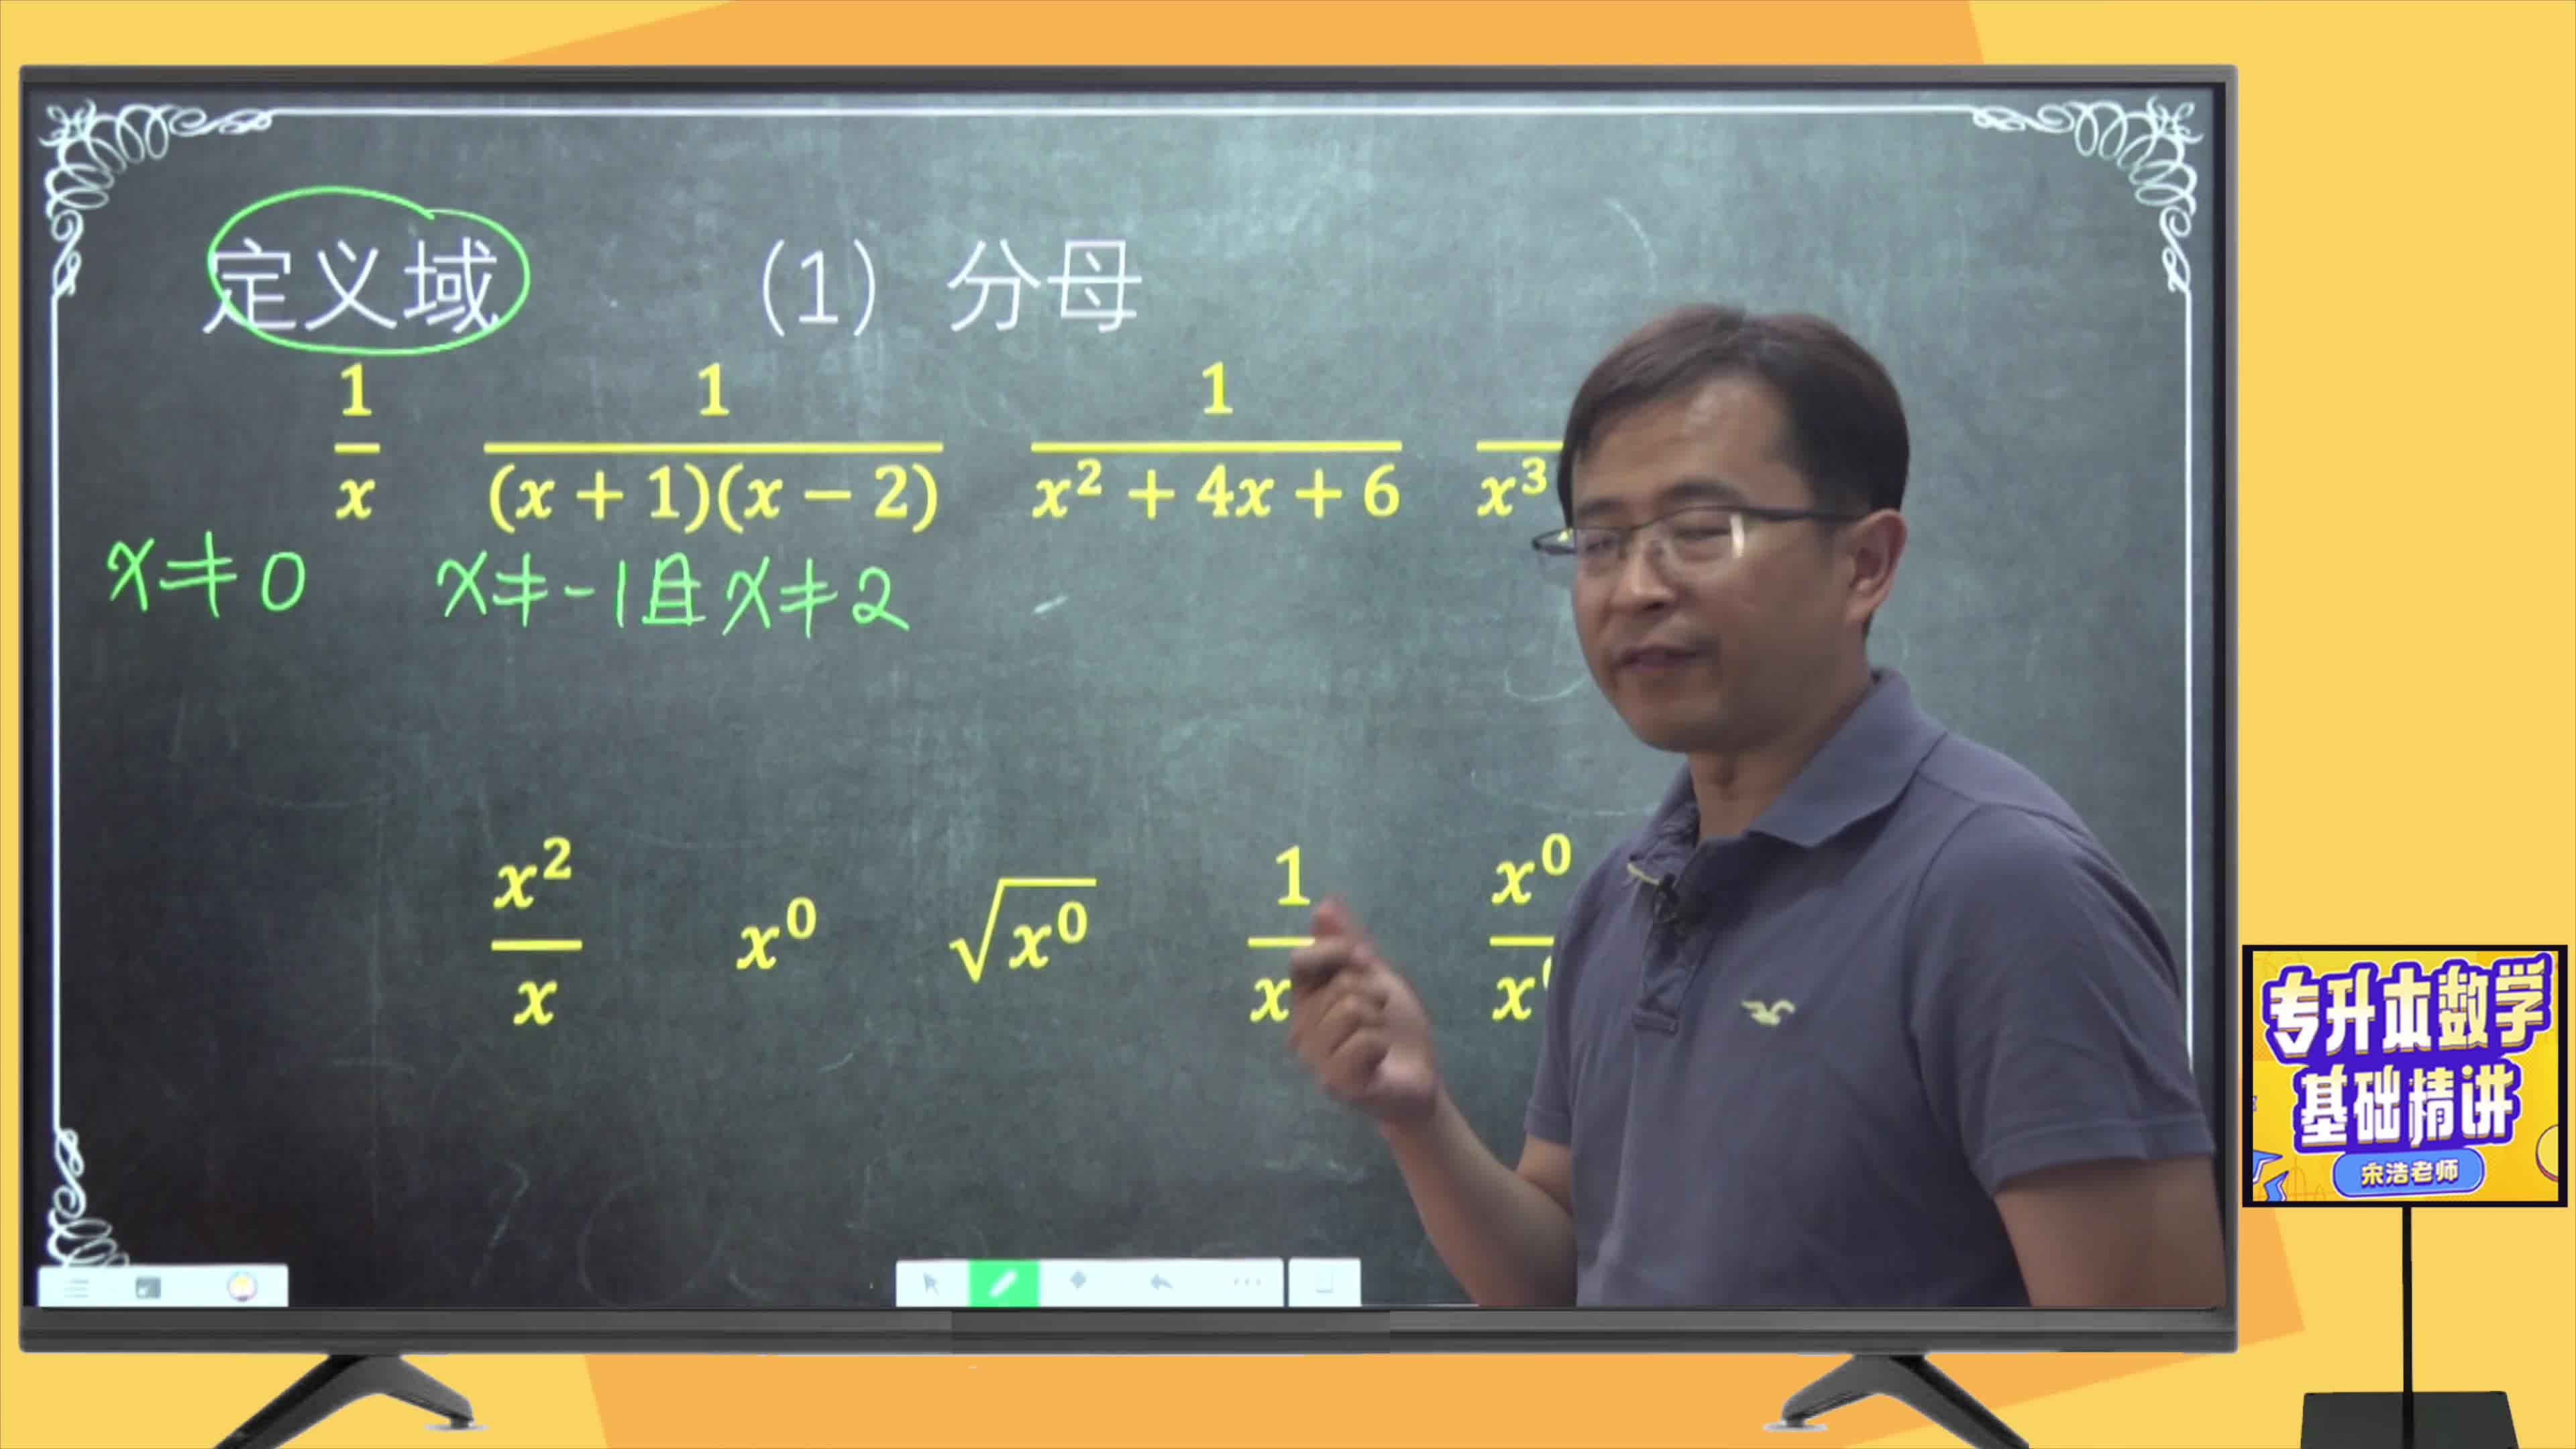 定义域 (1) 分母
1/x 1/((x + 1)(x − 2)) 1/(x² + 4x + 6) x³
x≠0 x≠-1且x≠2
x²/x x⁰ √x⁰ 1/x x⁰/x
专升本数学
基础精讲
宋浩老师